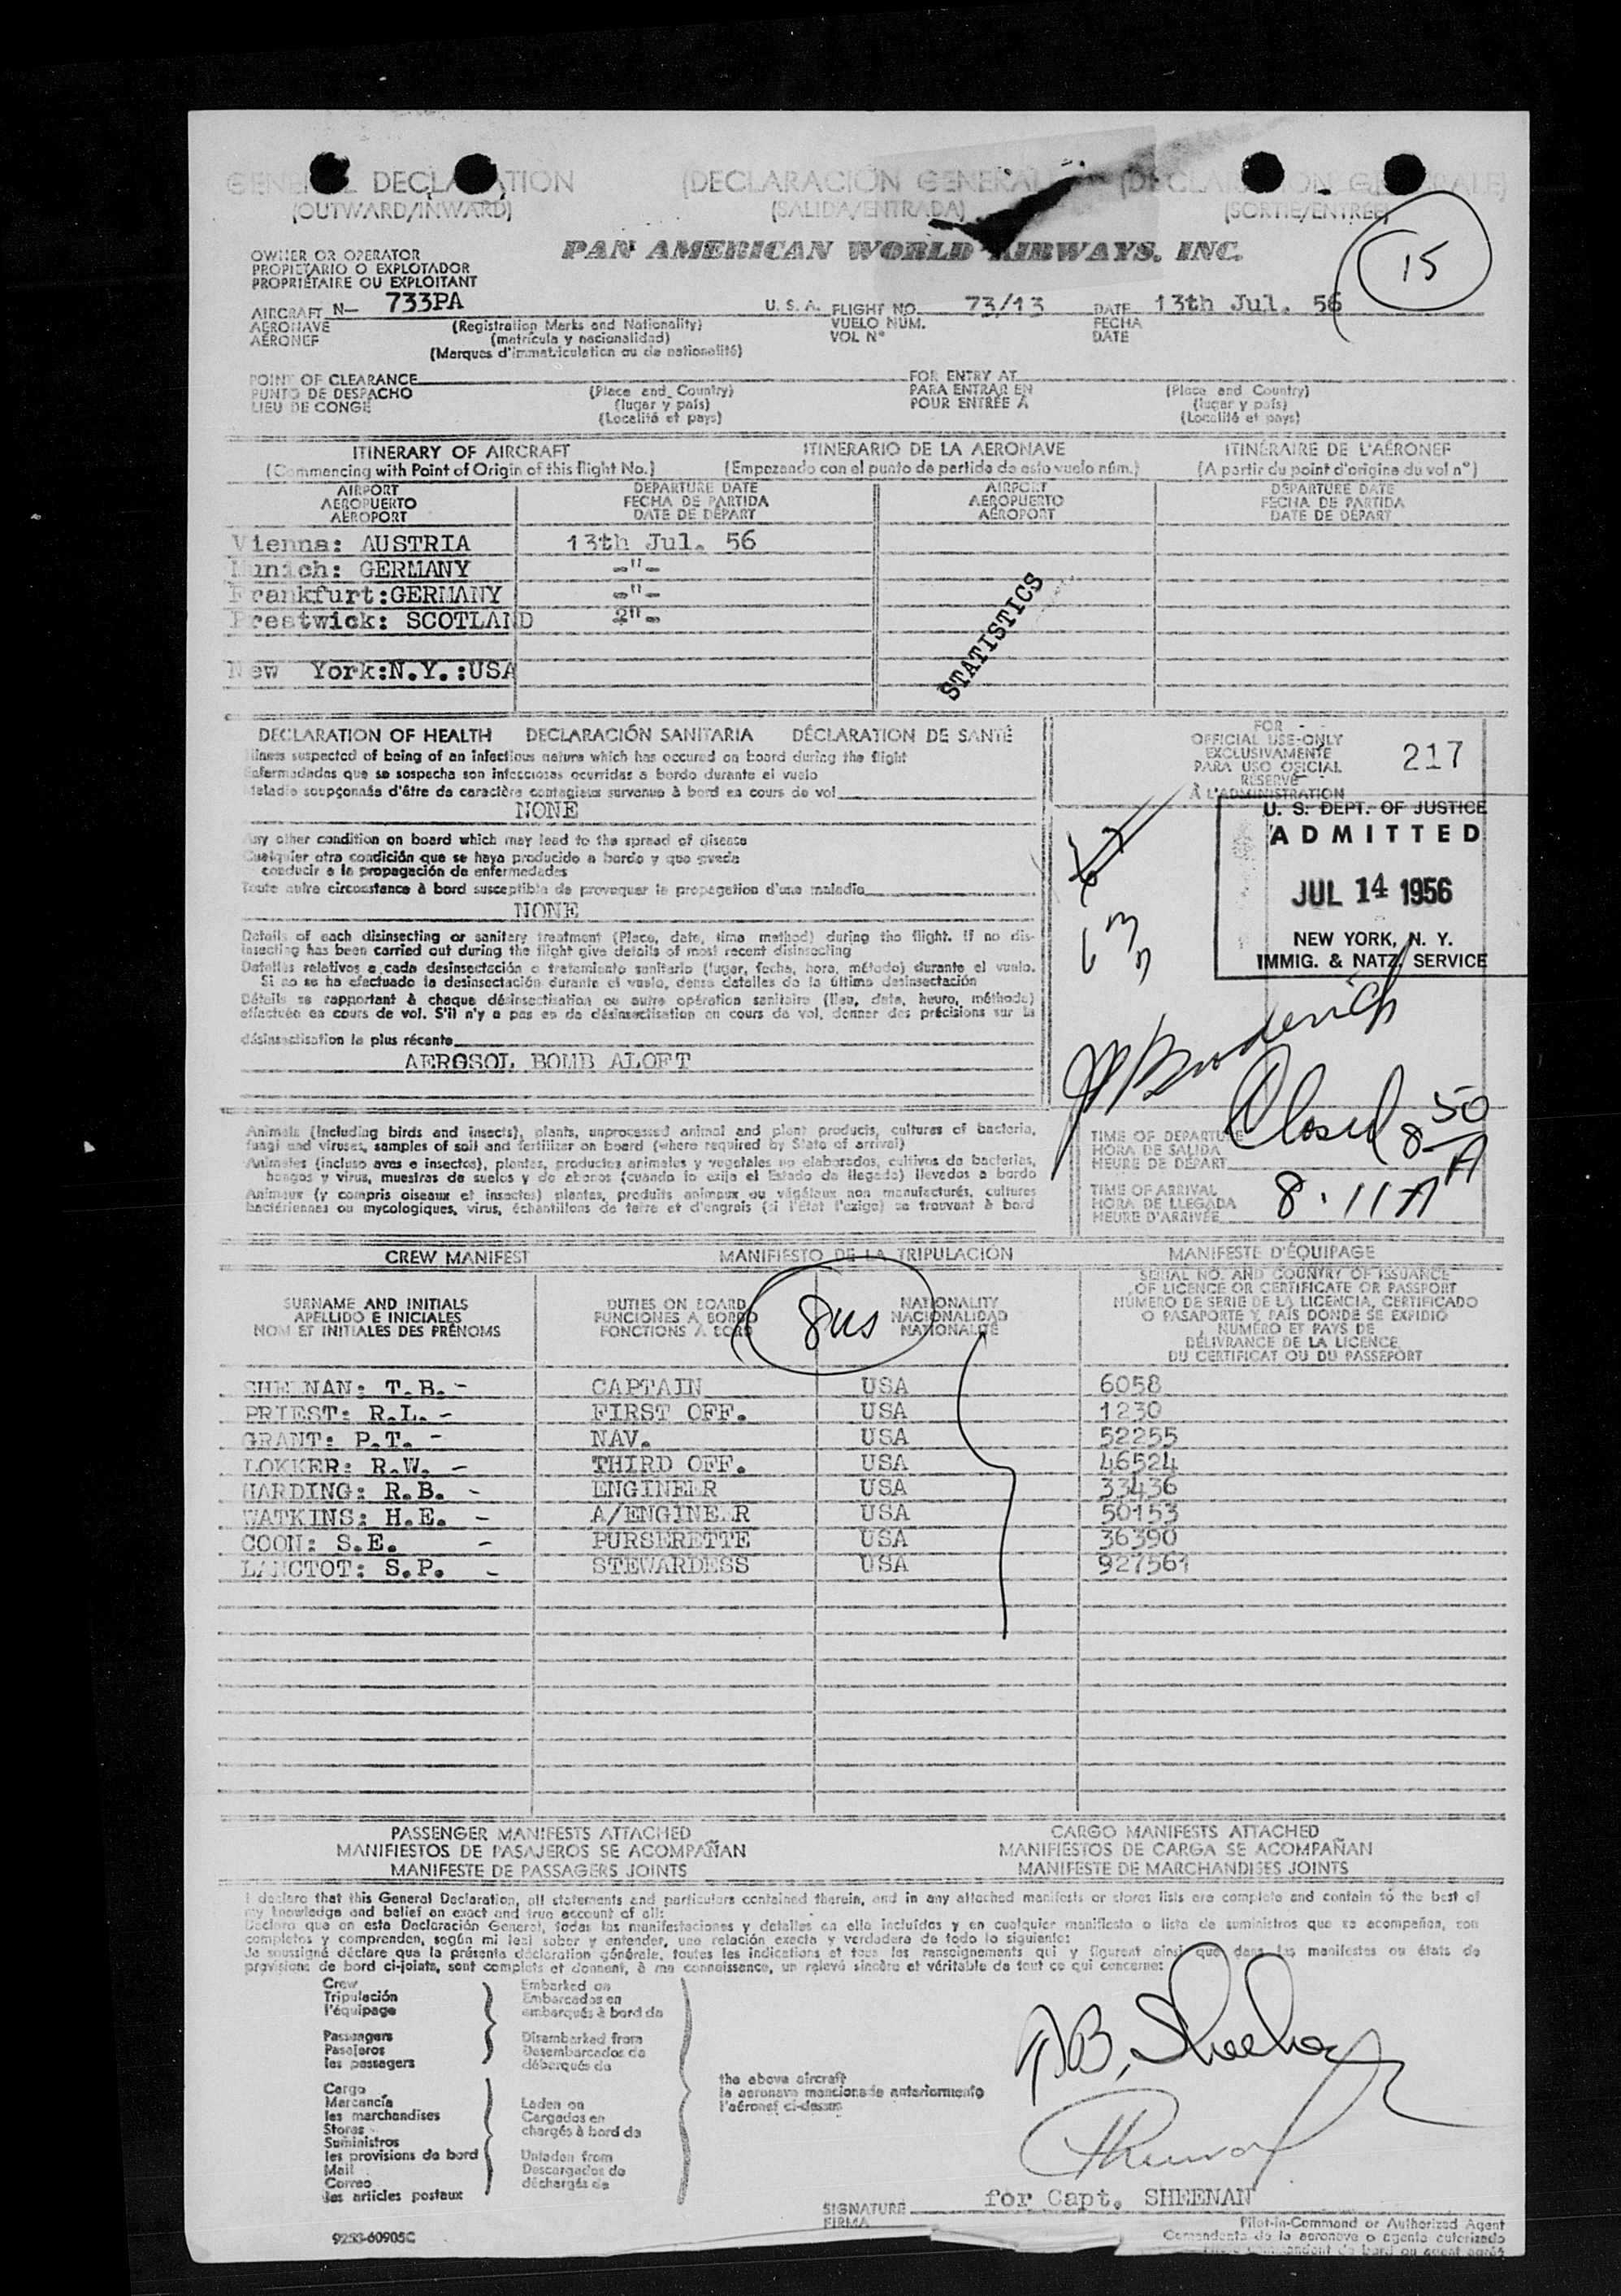 GENERAL DECLARATION (DECLARACIÓN GENERAL) (DÉCLARATION GÉNÉRALE)
(OUTWARD/INWARD) (SALIDA/ENTRADA) (SORTIE/ENTRÉE)
15
OWNER OR OPERATOR
PROPIETARIO O EXPLOTADOR
PROPRIÉTAIRE OU EXPLOITANT
PAN AMERICAN WORLD AIRWAYS, INC.
AIRCRAFT N— 733PA U. S. A. FLIGHT NO. 73/13 DATE 13th Jul. 56
AERONAVE (Registration Marks and Nationality) VUELO NÚM. FECHA
AÉRONEF (matrícula y nacionalidad) VOL N° DATE
(Marques d'immatriculation ou de nationalité)
POINT OF CLEARANCE FOR ENTRY AT
PUNTO DE DESPACHO (Place and Country) PARA ENTRAR EN (Place and Country)
LIEU DE CONGÉ (lugar y país) POUR ENTRÉE À (lugar y país)
(Localité et pays) (Localité et pays)
ITINERARY OF AIRCRAFT ITINERARIO DE LA AERONAVE ITINÉRAIRE DE L'AÉRONEF
(Commencing with Point of Origin of this flight No.) (Empezando con el punto de partida de este vuelo núm.) (A partir du point d'origine du vol n°)
AIRPORT DEPARTURE DATE AIRPORT DEPARTURE DATE
AEROPUERTO FECHA DE PARTIDA AEROPUERTO FECHA DE PARTIDA
AÉROPORT DATE DE DÉPART AÉROPORT DATE DE DÉPART
Vienna: AUSTRIA 13th Jul. 56
Munich: GERMANY -"-
Frankfurt:GERMANY -"-
Prestwick: SCOTLAND -"-
New York:N.Y.:USA
STATISTICS
DECLARATION OF HEALTH DECLARACIÓN SANITARIA DÉCLARATION DE SANTÉ
Illness suspected of being of an infectious nature which has occured on board during the flight
Enfermedades que se sospecha son infecciosas ocurridas a bordo durante el vuelo
Maladie soupçonnée d'être de caractère contagieux survenue à bord en cours de vol
NONE
Any other condition on board which may lead to the spread of disease
Cualquier otra condición que se haya producido a bordo y que pueda
conducir a la propagación de enfermedades
Toute autre circonstance à bord susceptible de provoquer la propagation d'une maladie
NONE
Details of each disinsecting or sanitary treatment (Place, date, time method) during the flight. If no dis-
insecting has been carried out during the flight give details of most recent disinsecting
Detalles relativos a cada desinsectación o tratamiento sanitario (lugar, fecha, hora, método) durante el vuelo.
Si no se ha efectuado la desinsectación durante el vuelo, dense detalles de la última desinsectación
Détails se rapportant à chaque désinsectisation ou autre opération sanitaire (lieu, date, heure, méthode)
effectuée en cours de vol. S'il n'y a pas eu de désinsectisation en cours de vol, donner des précisions sur la
désinsectisation la plus récente
AERGSOL BOMB ALOFT
FOR
OFFICIAL USE ONLY
EXCLUSIVAMENTE
PARA USO OFICIAL
RÉSERVÉ
À L'ADMINISTRATION
217
U. S. DEPT. OF JUSTICE
ADMITTED
JUL 14 1956
NEW YORK, N. Y.
IMMIG. & NATZ. SERVICE
Broderick
Closed 8 50 A
Animals (Including birds and insects), plants, unprocessed animal and plant products, cultures of bacteria,
fungi and viruses, samples of soil and fertilizer on board (where required by State of arrival)
Animales (incluso aves e insectos), plantas, productos animales y vegetales no elaborados, cultivos de bacterias,
hongos y virus, muestras de suelos y de abonos (cuando lo exija el Estado de llegada) llevados a bordo
Animaux (y compris oiseaux et insectes) plantes, produits animaux ou végétaux non manufacturés, cultures
bactériennes ou mycologiques, virus, échantillons de terre et d'engrais (si l'Etat l'exige) se trouvant à bord
TIME OF DEPARTURE
HORA DE SALIDA
HEURE DE DÉPART
TIME OF ARRIVAL
HORA DE LLEGADA 8.11 A
HEURE D'ARRIVÉE
CREW MANIFEST MANIFIESTO DE LA TRIPULACIÓN MANIFESTE D'ÉQUIPAGE
SURNAME AND INITIALS
APELLIDO E INICIALES
NOM ET INITIALES DES PRÉNOMS
DUTIES ON BOARD
FUNCIONES A BORDO
FONCTIONS À BORD
8us
NATIONALITY
NACIONALIDAD
NATIONALITÉ
SERIAL NO. AND COUNTRY OF ISSUANCE
OF LICENCE OR CERTIFICATE OR PASSPORT
NÚMERO DE SERIE DE LA LICENCIA, CERTIFICADO
O PASAPORTE Y PAÍS DONDE SE EXPIDIÓ
NUMÉRO ET PAYS DE
DÉLIVRANCE DE LA LICENCE,
DU CERTIFICAT OU DU PASSEPORT
SHEENAN: T.B. - CAPTAIN USA 6058
PRIEST: R.L. - FIRST OFF. USA 1230
GRANT: P.T. - NAV. USA 52255
LOKKER: R.W. - THIRD OFF. USA 46524
HARDING: R.B. - ENGINEER USA 33436
WATKINS: H.E. - A/ENGINEER USA 50153
COON: S.E. - PURSERETTE USA 36390
LANCTOT: S.P. - STEWARDESS USA 927561
PASSENGER MANIFESTS ATTACHED CARGO MANIFESTS ATTACHED
MANIFIESTOS DE PASAJEROS SE ACOMPAÑAN MANIFIESTOS DE CARGA SE ACOMPAÑAN
MANIFESTE DE PASSAGERS JOINTS MANIFESTE DE MARCHANDISES JOINTS
I declare that this General Declaration, all statements and particulars contained therein, and in any attached manifests or stores lists are complete and contain to the best of
my knowledge and belief an exact and true account of all:
Declaro que en esta Declaración General, todas las manifestaciones y detalles en ella incluídos y en cualquier manifiesto o lista de suministros que se acompañen, son
completos y comprenden, según mi leal saber y entender, una relación exacta y verdadera de todo lo siguiente:
Je soussigné déclare que la présente déclaration générale, toutes les indications et tous les renseignements qui y figurent ainsi que dans les manifestes ou états de
provisions de bord ci-joints, sont complets et donnent, à ma connaissance, un relevé sincère et véritable de tout ce qui concerne:
Crew
Tripulación
l'équipage
Passengers
Pasajeros
les passagers
Cargo
Mercancía
les marchandises
Stores
Suministros
les provisions de bord
Mail
Correo
les articles postaux
Embarked on
Embarcados en
embarqués à bord de
Disembarked from
Desembarcados de
débarqués de
Laden on
Cargados en
chargés à bord de
Unladen from
Descargados de
déchargés de
the above aircraft
la aeronave mencionada anteriormente
l'aéronef ci-dessus
T.B. Sheehan
SIGNATURE for Capt. SHEENAN
FIRMA
Pilot-in-Command or Authorized Agent
Comandante de la aeronave o agente autorizado
9253-60905C